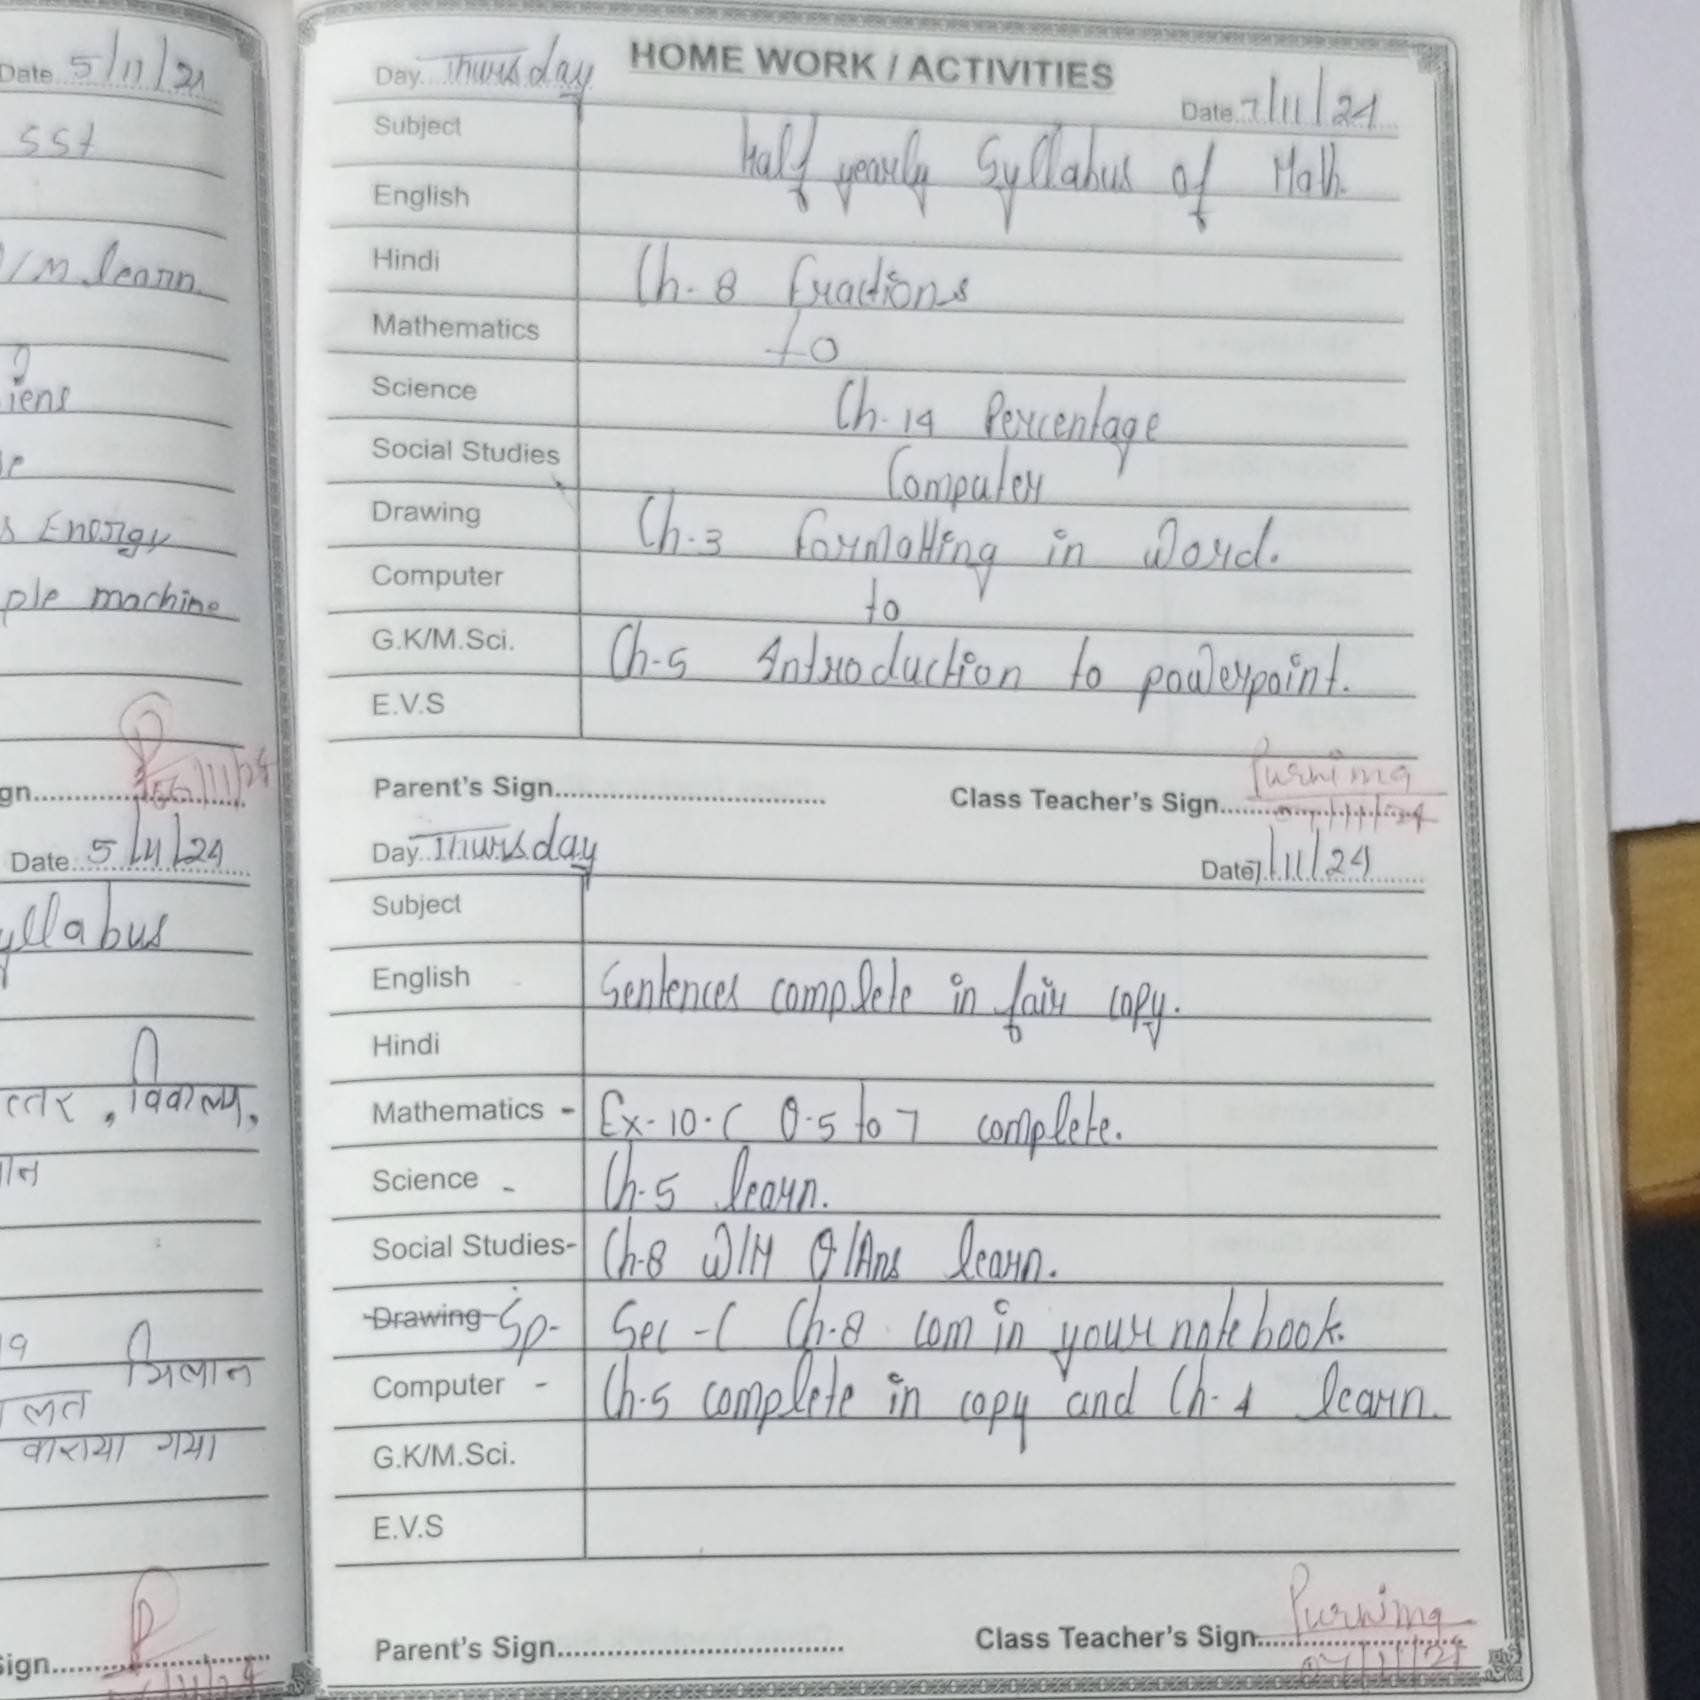 Date 5/11/24
SST
/M learn
iens
s Energy
ple machine
gn
06/11/24
Date 5/11/24
yllabus
त्तर , विकल्प,
मिलान
लत
कराया गया
Sign
HOME WORK / ACTIVITIES
Day Thursday
Date 7/11/24
Subject
Half yearly Syllabus of Math.
English
Hindi
Ch. 8 fractions
Mathematics
to
Science
Ch. 14 Percentage
Social Studies
Computer
Drawing
Ch.3 formatting in Word.
Computer
to
G.K/M.Sci.
Ch-5 Introduction to powerpoint.
E.V.S
Parent's Sign
Class Teacher's Sign Purnima
07/11/24
Day Thursday
Date 7/11/24
Subject
English Sentences complete in fair copy.
Hindi
Mathematics - Ex-10.C Q.5 to 7 complete.
Science - Ch.5 learn.
Social Studies- Ch-8 W/M Q/Ans learn.
Drawing Sp- Sec-C Ch.8 com in your notebook.
Computer - Ch.5 complete in copy and Ch-4 learn.
G.K/M.Sci.
E.V.S
Parent's Sign
Class Teacher's Sign Purnima
07/11/24